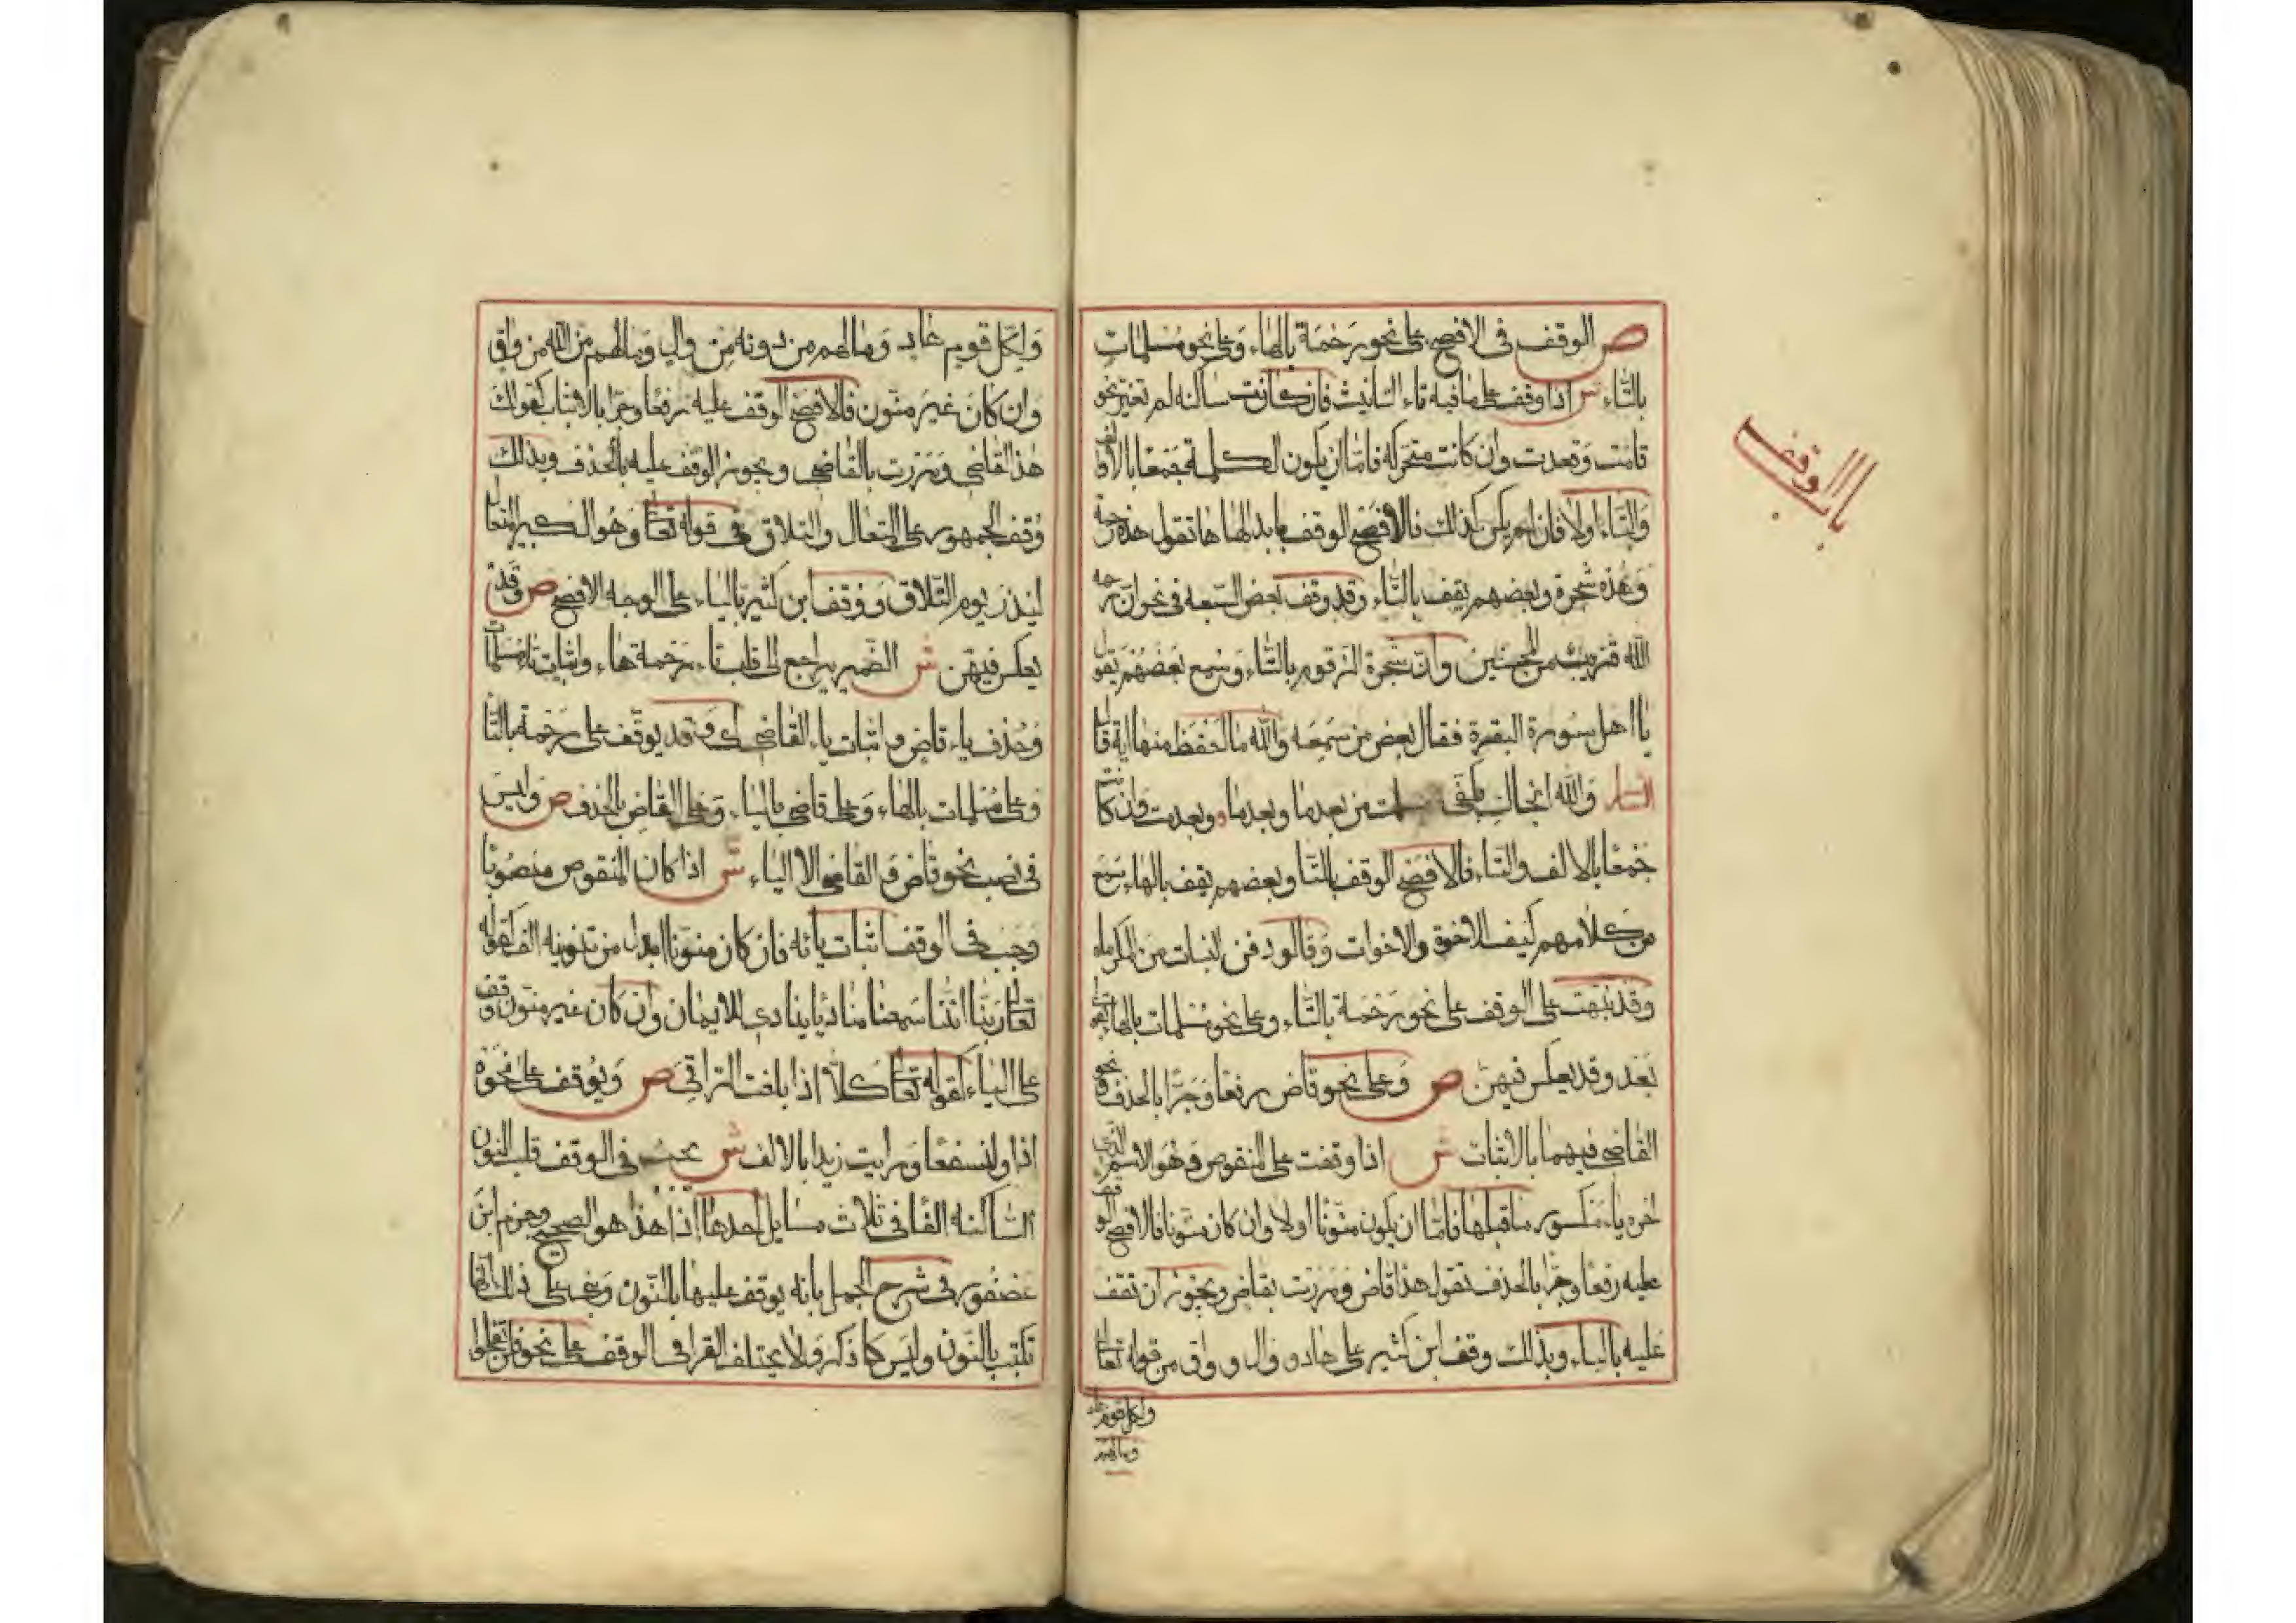 باب الوقف
ص الوقف في الافصح على نحو رحمة بالهاء وعلى نحو مسلمات
بالتاء ش اذا وقف على ما فيه تاء التانيث فان كانت ساكنه لم تغير نحو
قامت وقعدت وان كانت متحركه فاما ان يكون الكلمة جمعا بالالف
والتاء اولا فان لم يكن كذلك فالافصح الوقف بابدالها ها تقول هذه رحمة
وهذه شجرة وبعضهم يقف بالتاء وقد وقف بعض السبعه في نحو ان رحمه
الله قريب من المحسنين وان شجرة الزقوم بالتاء وسمع بعضهم يقول
يا اهل سورة البقرة فقال بعض من سمعه والله ما احفظ منها اية قال
والله انجاك بكفى من بعدما وبعدما وبعدمت وان كانت
جمعا بالالف والتاء فالافصح الوقف بالتا وبعضهم يقف بالهاء سمع
من كلامهم كيف الاخوة والاخوات وقالو دفن البنات من المكرماه
وقد نبهت على الوقف على نحو رحمة بالتاء وعلى نحو مسلمات بالهاء
بعد وقد يعكس فيهن ص وعلى نحو قاض رفعا وجرا بالحذف ونحو
القاضي فيهما بالاثبات ش اذا وقفت على المنقوص وهو الاسم الذي
اخره ياء مكسور ما قبلها فاما ان يكون منونا اولا وان كان منونا فالافصح الوقف
عليه رفعا وجرا بالحذف تقول هذا قاض ومررت بقاض ويجوز ان تقف
عليه بالياء وبذلك وقف ابن كثير على هاد و وال و واق من قوله تعالى
ولكل قوم هاد
وما لهم
ولكل قوم هاد وما لهم من دونه من وال وما لهم من الله من واق
وان كان غير منون فالافصح الوقف عليه رفعا وجرا بالاثبات كقولك
هذا القاضي ومررت بالقاضي ويجوز الوقف عليه بالحذف وبذلك
وقف الجمهور على المتعال والتلاق في قوله تعالى وهو الكبير المتعال
لينذر يوم التلاق ووقف ابن كثير بالياء على الوجه الافصح ص وقد
يعكس فيهن ش الضمير يراجع الى قلب تاء رحمة هاء واثبات تاء مسلمات
وحذف ياء قاض واثبات ياء القاضي اي وقد يوقف على رحمة بالتا
وعلى مسلمات بالهاء وعلى قاضي بالياء وعلى القاض بالحذف ص وليس
في نصب نحو قاض والقاضي الا الياء ش اذا كان المنقوص منصوبا
وجب في الوقف اثبات يائه فان كان منونا ابدل من تنوينه الف كقوله
تعالى ربنا اننا سمعنا مناديا ينادي للايمان وان كان غير منون وقف
على الياء كقوله تعالى كلا اذا بلغت التراقي ص ويوقف على نحو
اذا ولنسفعا ورايت زيدا بالالف ش يجب في الوقف قلب النون
الساكنه الفا في ثلاث مسايل احدها اذا هذا هو الصحيح وجزم ابن
عصفور في شرح الجمل بانه يوقف عليها بالنون وبنى على ذلك انها
تكتب بالنون وليس كما ذكر ولا يختلف القرا في الوقف على نحو ولن تفلحوا